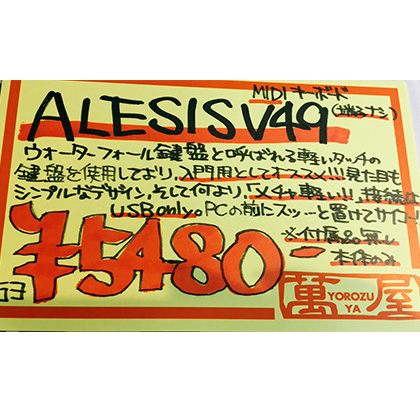 MIDIキーボード
ALESIS V49
ウォーターフォール鍵盤と呼ばれる軽いタッチの
鍵盤を使用しており、入門用としてオススメ!!! 見た目も
シンプルなデザイン。そして何より「メチャ軽い!!」接続は
USB only。PCの前にスッ…と置けてサイコー!
※付属品無し
本体のみ
¥5480-
萬屋
YOROZU
YA